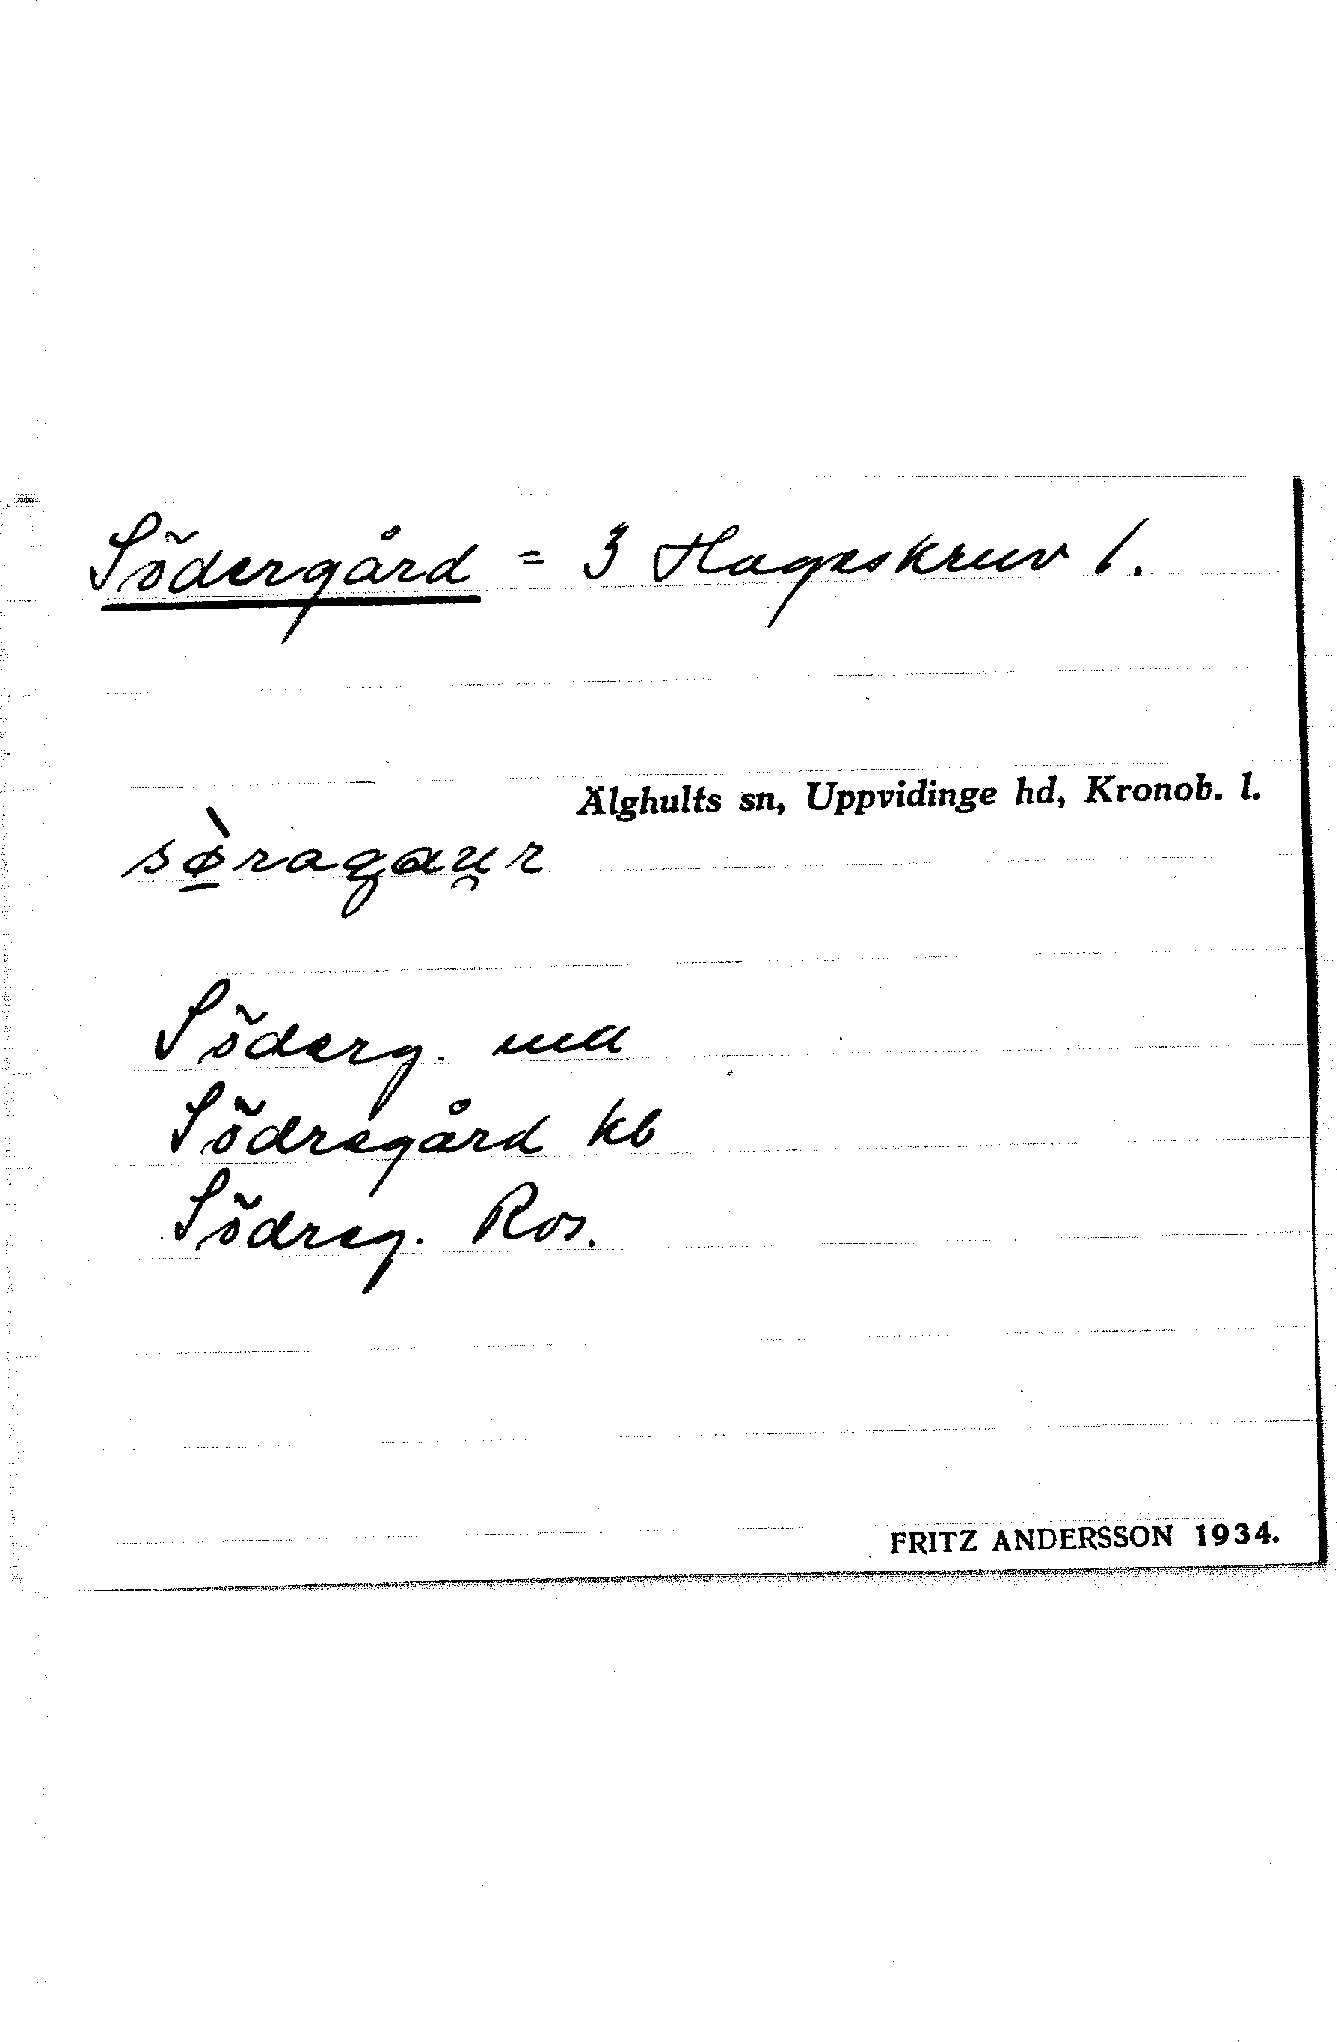 Södergård = 3 Hageskruv 1.
Älghults sn, Uppvidinge hd, Kronob. l.
sø̲̀ragau̯r
Söderg. mu
Södregård kb
Södreg. Ros.
FRITZ ANDERSSON 1934.